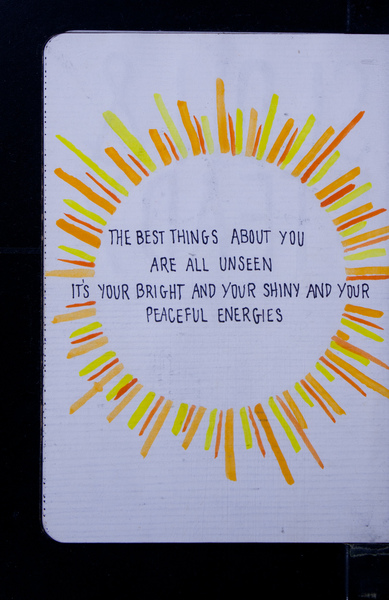 THE BEST THINGS ABOUT YOU
ARE ALL UNSEEN
IT'S YOUR BRIGHT AND YOUR SHINY AND YOUR
PEACEFUL ENERGIES